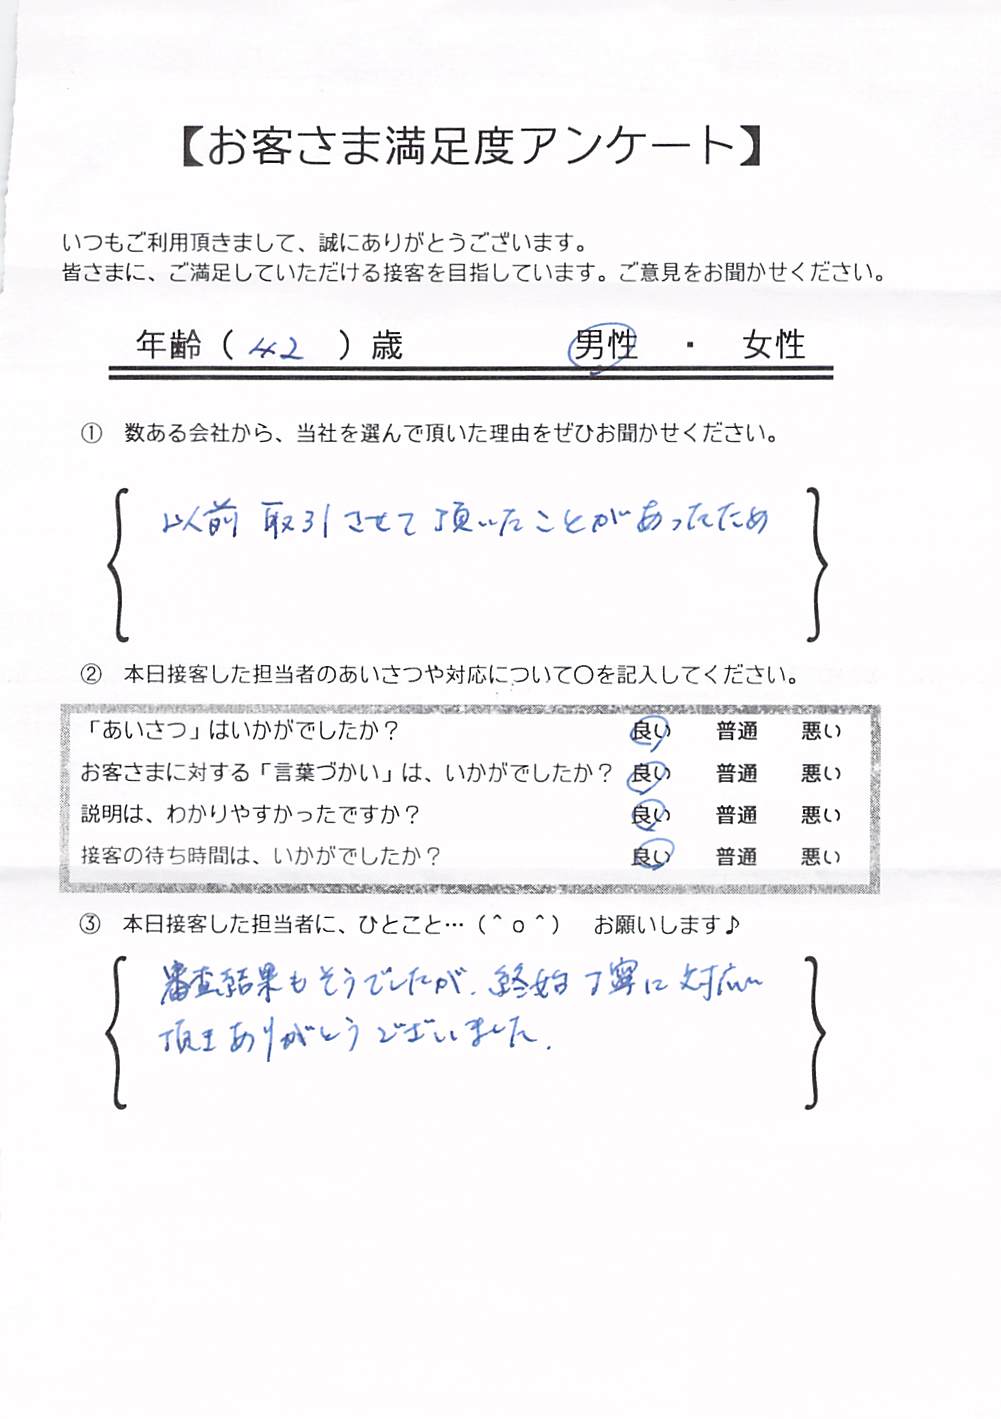 【お客さま満足度アンケート】
いつもご利用頂きまして、誠にありがとうございます。
皆さまに、ご満足していただける接客を目指しています。ご意見をお聞かせください。
年齢（ 42 ）歳　男性　・　女性
①　数ある会社から、当社を選んで頂いた理由をぜひお聞かせください。
以前 取引させて頂いたことがあったため
②　本日接客した担当者のあいさつや対応について〇を記入してください。
「あいさつ」はいかがでしたか？　良い　普通　悪い
お客さまに対する「言葉づかい」は、いかがでしたか？　良い　普通　悪い
説明は、わかりやすかったですか？　良い　普通　悪い
接客の待ち時間は、いかがでしたか？　良い　普通　悪い
③　本日接客した担当者に、ひとこと…（＾ｏ＾）　お願いします♪
審査結果もそうでしたが、終始丁寧に対応い
頂きありがとうございました.